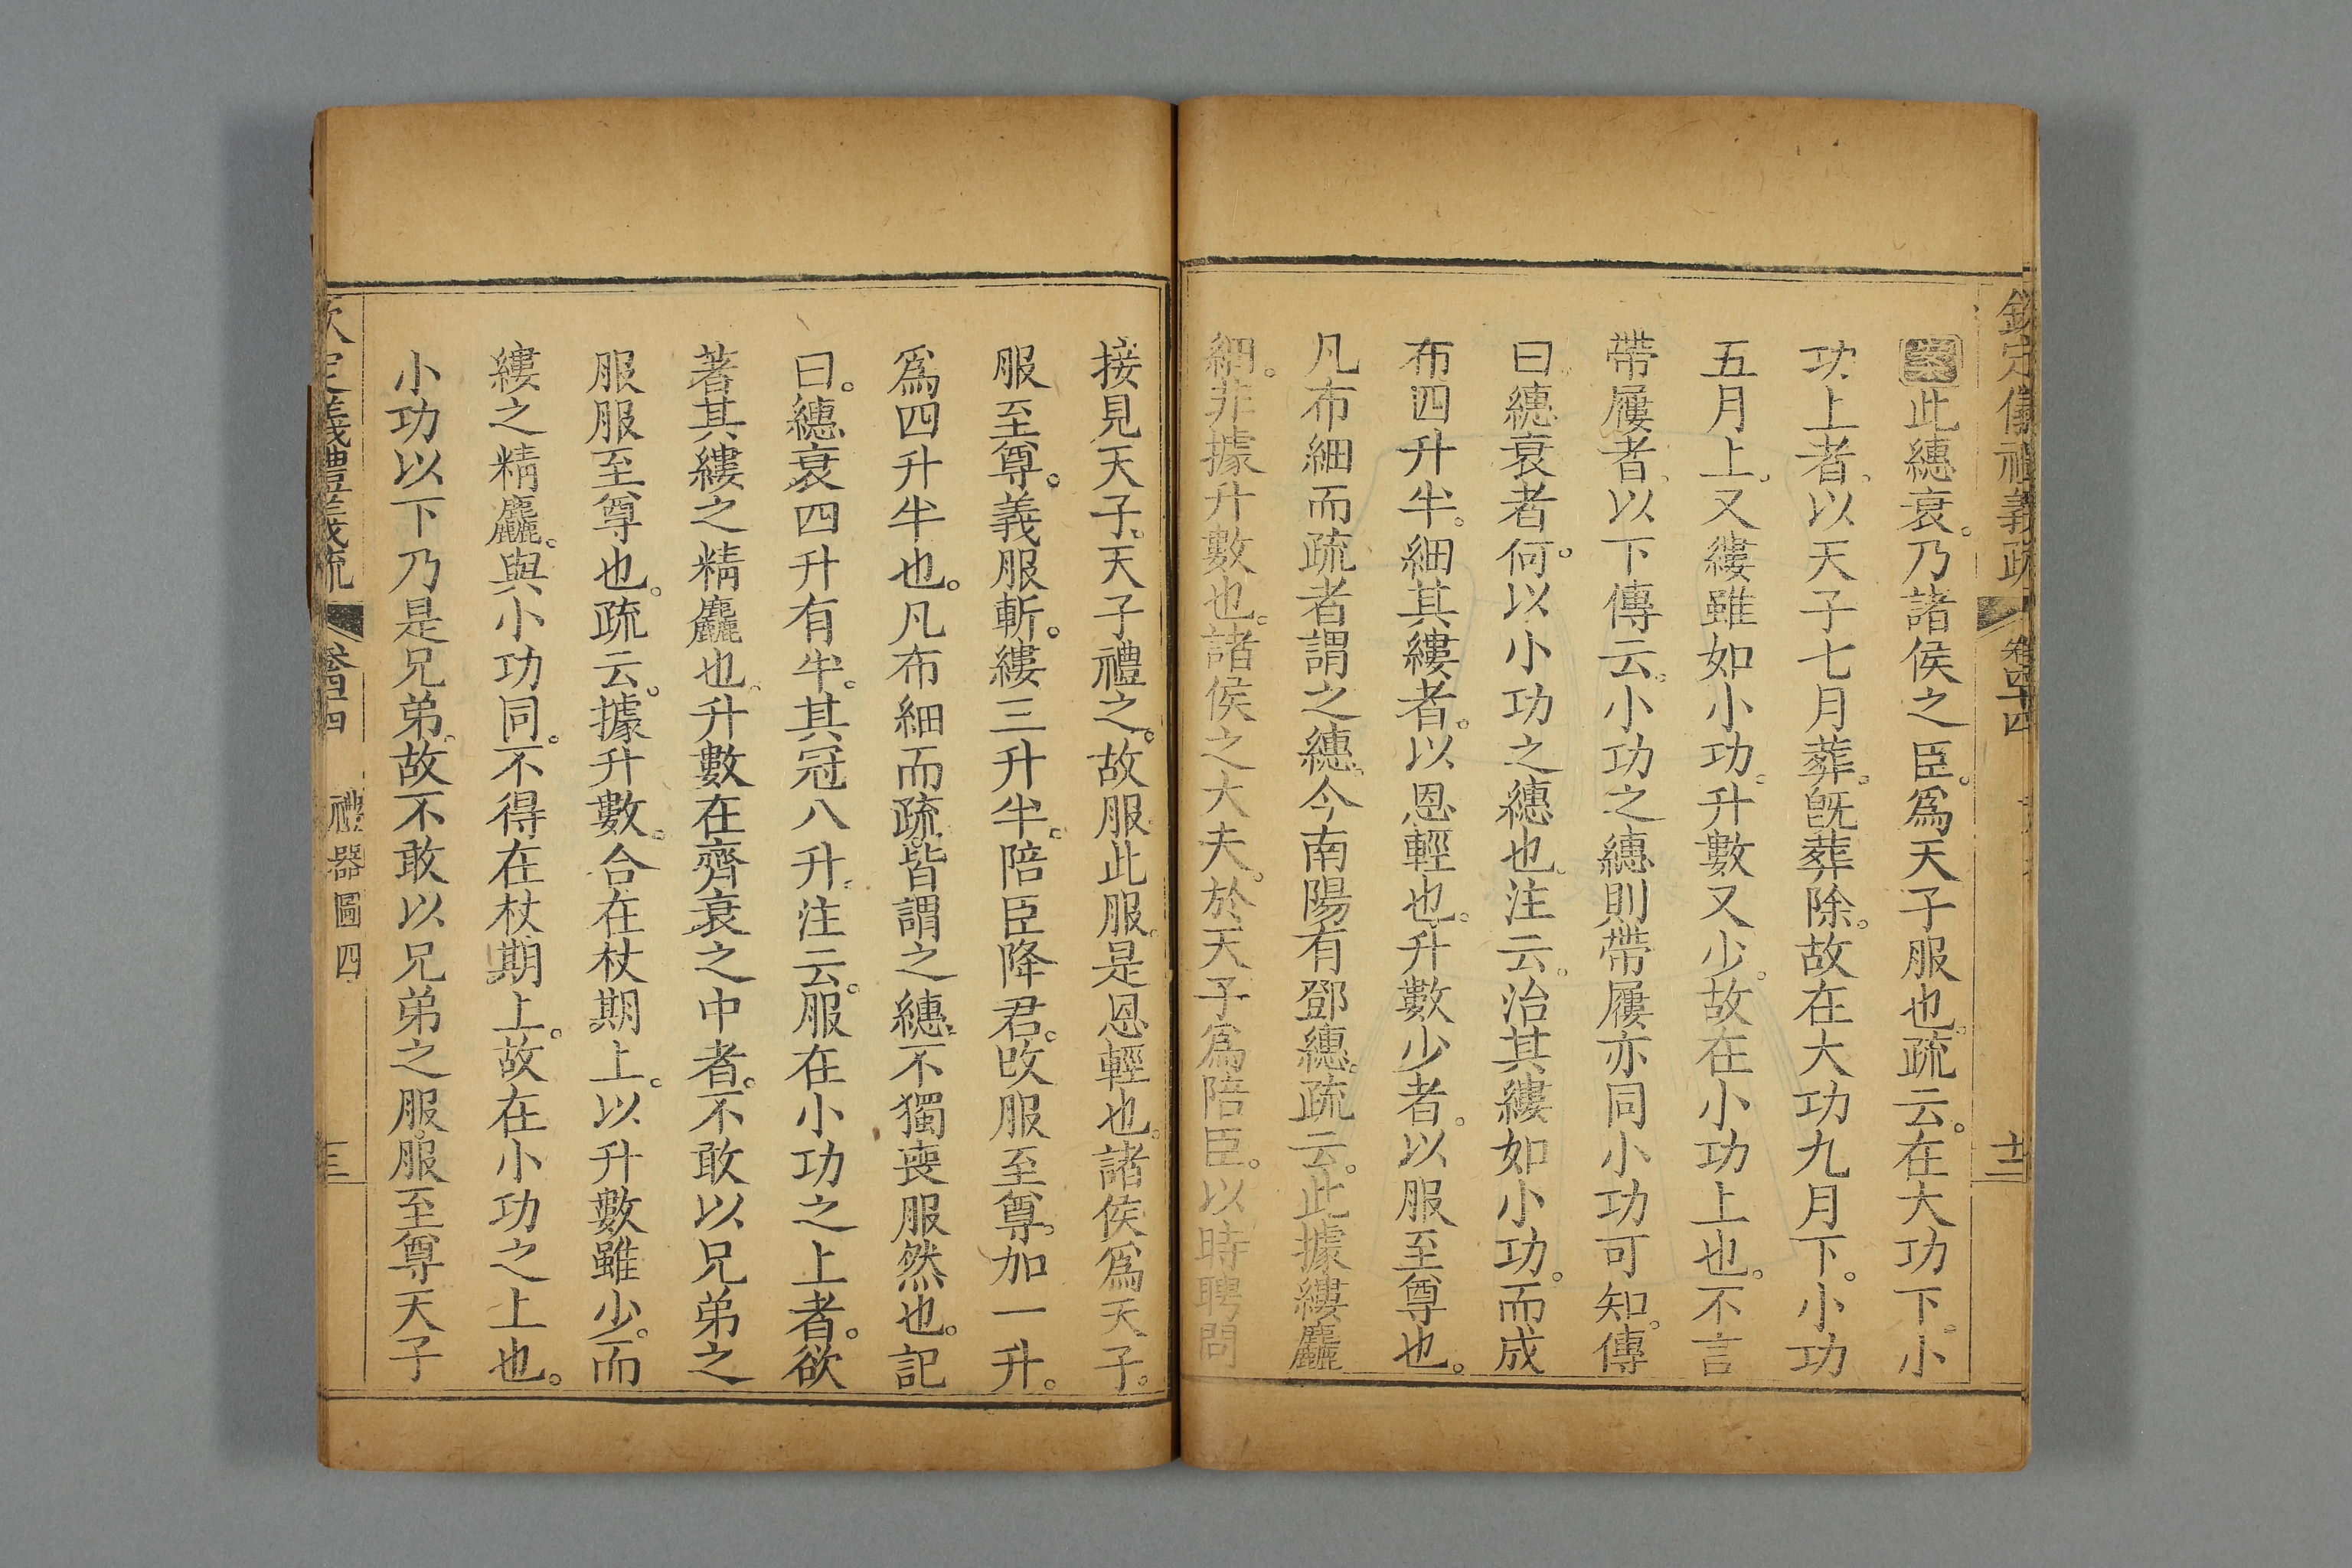 欽定儀禮義疏 卷四十四 十二
案此繐衰。乃諸侯之臣。爲天子服也。疏云。在大功下。小
功上者。以天子七月葬。旣葬除。故在大功九月下。小功
五月上。又縷雖如小功。升數又少。故在小功上也。不言
帶屨者。以下傳云。小功之繐。則帶屨亦同小功可知。傳
曰。繐衰者何。以小功之繐也。注云。治其縷如小功。而成
布四升半。細其縷者。以恩輕也。升數少者。以服至尊也。
凡布細而疏者謂之繐。今南陽有鄧繐。疏云。此據縷麤
細。非據升數也。諸侯之大夫。於天子爲陪臣。以時聘問
接見天子。天子禮之。故服此服。是恩輕也。諸侯爲天子。
服至尊。義服斬。縷三升半。陪臣降君。攺服至尊。加一升。
爲四升半也。凡布細而疏。皆謂之繐。不獨喪服然也。記
曰。繐衰四升有半。其冠八升。注云。服在小功之上者。欲
著其縷之精麤也。升數在齊衰之中者。不敢以兄弟之
服服至尊也。疏云。據升數。合在杖期上。以升數雖少。而
縷之精麤。與小功同。不得在杖期上。故在小功之上也。
小功以下乃是兄弟。故不敢以兄弟之服。服至尊天子
欽定儀禮義疏 卷四十四 禮器圖四